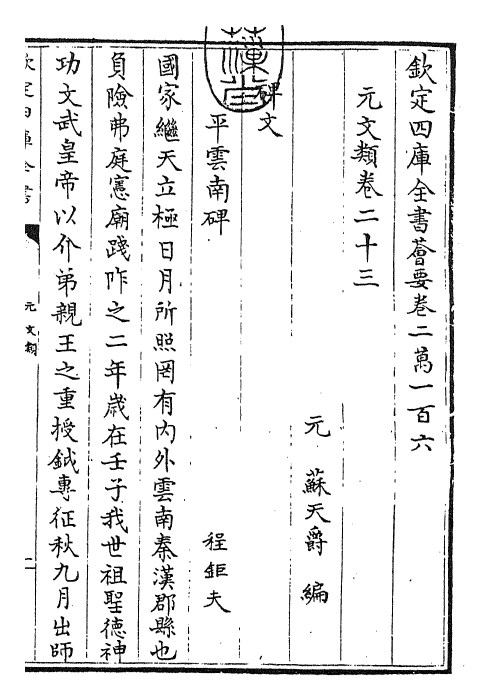 欽定四庫全書薈要卷二萬一百六
元文類卷二十三
元 蘇天爵 編
碑文
平雲南碑 程鉅夫
國家繼天立極日月所照罔有内外雲南秦漢郡縣也
負險弗庭憲廟踐阼之二年歲在壬子我世祖聖德神
功文武皇帝以介弟親王之重授鉞專征秋九月出師
欽定四庫全書
元文類